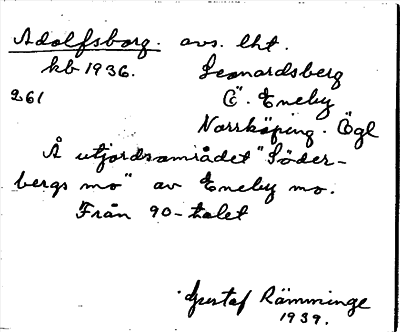 Adolfsborg. avs. lht.
kb 1936. Leonardsberg
261 Ö. Eneby
Norrköping. Ögl
Å utjordsområdet "Söder-
bergs mo" av Eneby mo.
Från 90-talet
Gustaf Rämminge
1939.